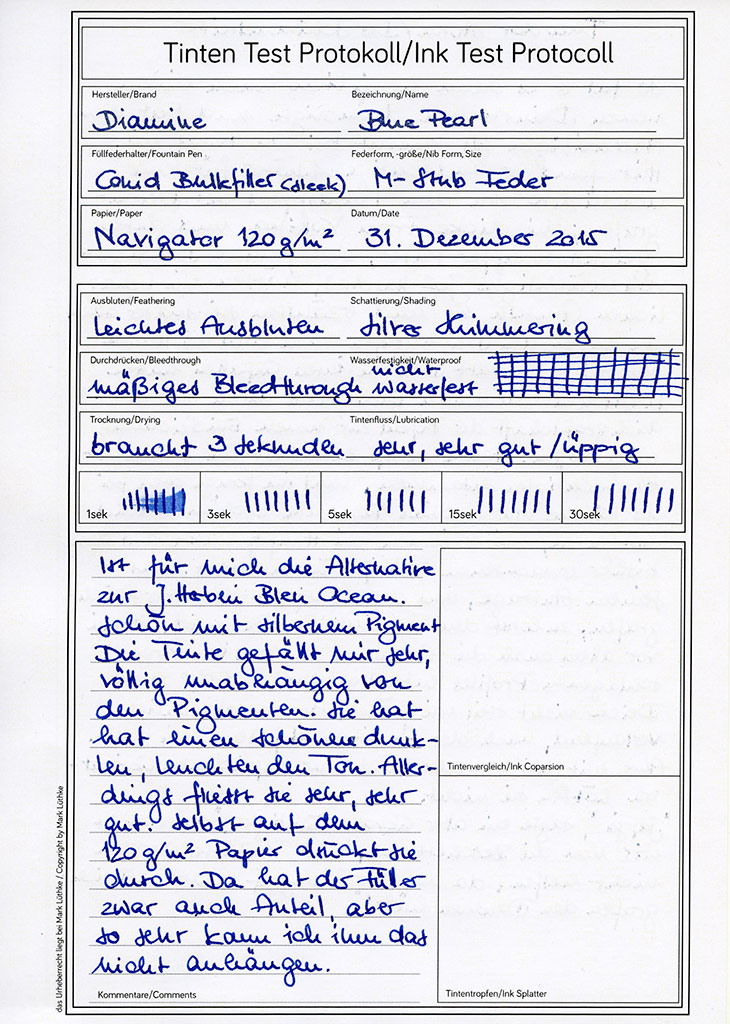 Tinten Test Protokoll/Ink Test Protocoll
Hersteller/Brand
Diamine
Bezeichnung/Name
Blue Pearl
Füllfederhalter/Fountain Pen
Conid Bulkfiller (sleek)
Federform, -größe/Nib Form, Size
M-Stub Feder
Papier/Paper
Navigator 120g/m²
Datum/Date
31. Dezember 2015
Ausbluten/Feathering
leichtes Ausbluten
Schattierung/Shading
silver shimmering
Durchdrücken/Bleedthrough
mäßiges Bleedthrough
Wasserfestigkeit/Waterproof
nicht
wasserfest
Trocknung/Drying
braucht 3 sekunden
Tintenfluss/Lubrication
sehr, sehr gut/üppig
1sek
3sek
5sek
15sek
30sek
Ist für mich die Alternative
zur J. Herbin Bleu Ocean.
schön mit silbernem Pigment
Die Tinte gefällt mir sehr,
völlig unabhängig von
den Pigmenten. Sie hat
hat einen schönen dunk-
len, leuchtenden Ton. Aller-
dings fliesst sie sehr, sehr
gut. selbst auf dem
120g/m² Papier drückt sie
durch. Da hat der Füller
zwar auch Anteil, aber
so sehr kann ich ihm das
nicht anhängen.
Kommentare/Comments
Tintenvergleich/Ink Coparsion
Tintentropfen/Ink Splatter
das Urheberrecht liegt bei Mark Lüthke / Copyright by Mark Lüthke